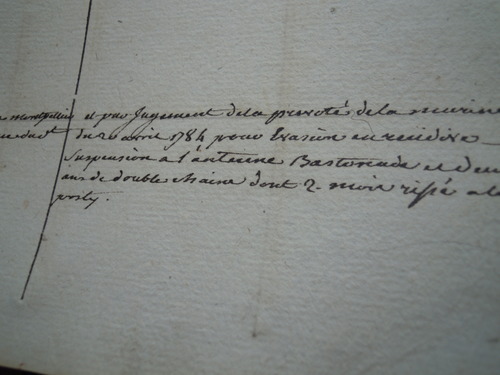 montpellier et par Jugement de la prevoté de la marine
du 20 avril 1784 pour Evasion en recidive
Suspension a l'antenne Bastonnade et deux
ans de double chaine dont 2. mois rissé a la
posty.